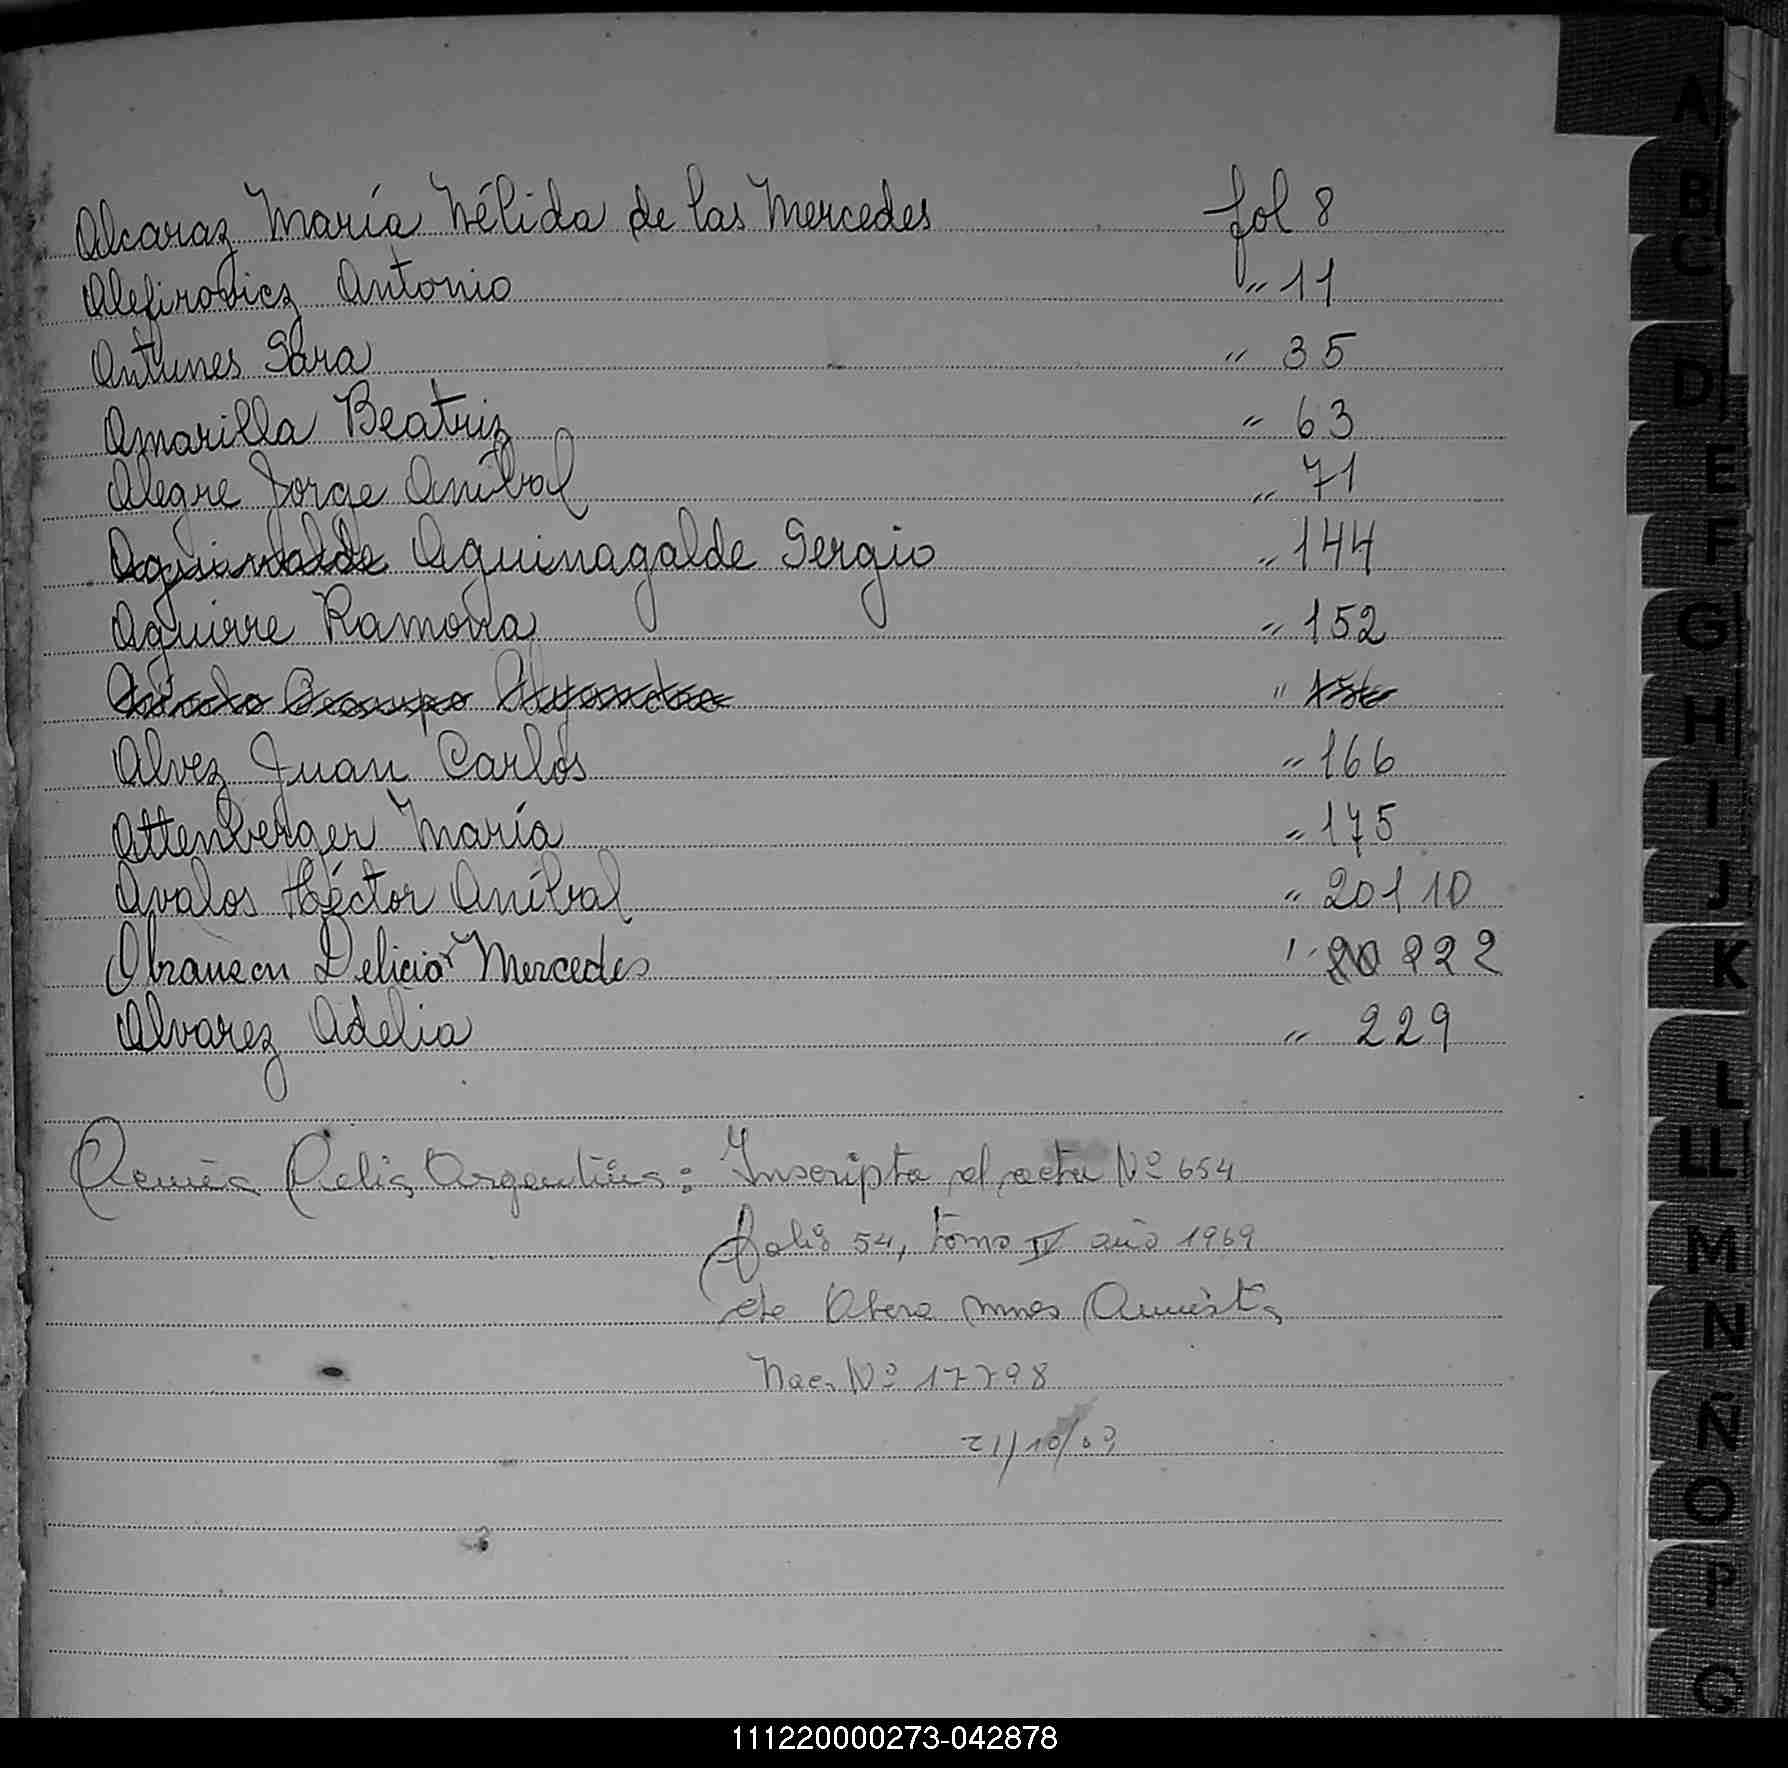 Alcaraz María Nélida de las Mercedes fol 8
Alefirovicz Antonio " 11
Antunes Sara " 35
Amarilla Beatriz " 63
Alegre Jorge Aníbal " 71
Aguinalde Aguinagalde Sergio " 144
Aguirre Ramona " 152
" 156
Alvez Juan Carlos " 166
Attenberger María " 175
Avalos Héctor Aníbal " 201 10
Mercedes " 20 222
Alvarez Adelia " 229
Argentina: Inscripta el acta Nº 654
folio 54, tomo IV año 1969
de Obera mnes
Nac. Nº 17798
21/10/
A
B
C
D
E
F
G
H
I
J
K
L
LL
M
N
Ñ
O
P
111220000273-042878